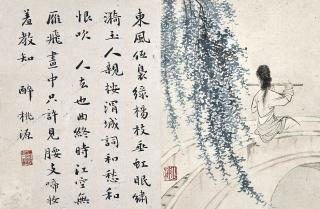 東風低裊綠楊枝垂虹眼繡
漪玉人親按渭城詞和愁和
恨吹 人去也曲終時江空無
雁飛畫中只許見腰支啼妝
羞教知 醉桃源